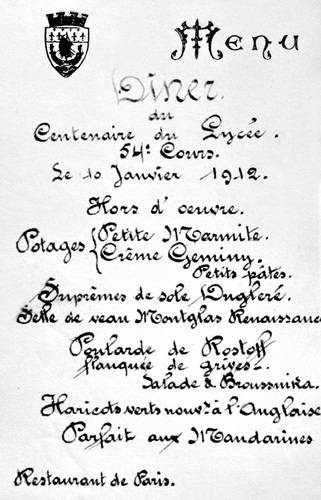 Menu
Dîner
du
Centenaire du Lycée.
54e Cours.
Le 10 Janvier 1912.
Hors d'œuvre.
Potages { Petite Marmite.
Crème Geminy.
Petits pâtes.
Suprêmes de sole Dugleré.
Selle de veau Montglas Renaissance
Poularde de Rostoff
flanquée de grives.
Salade à Broussnika.
Haricots verts nouv.x à l'Anglaise
Parfait aux Mandarines
Restaurant de Paris.